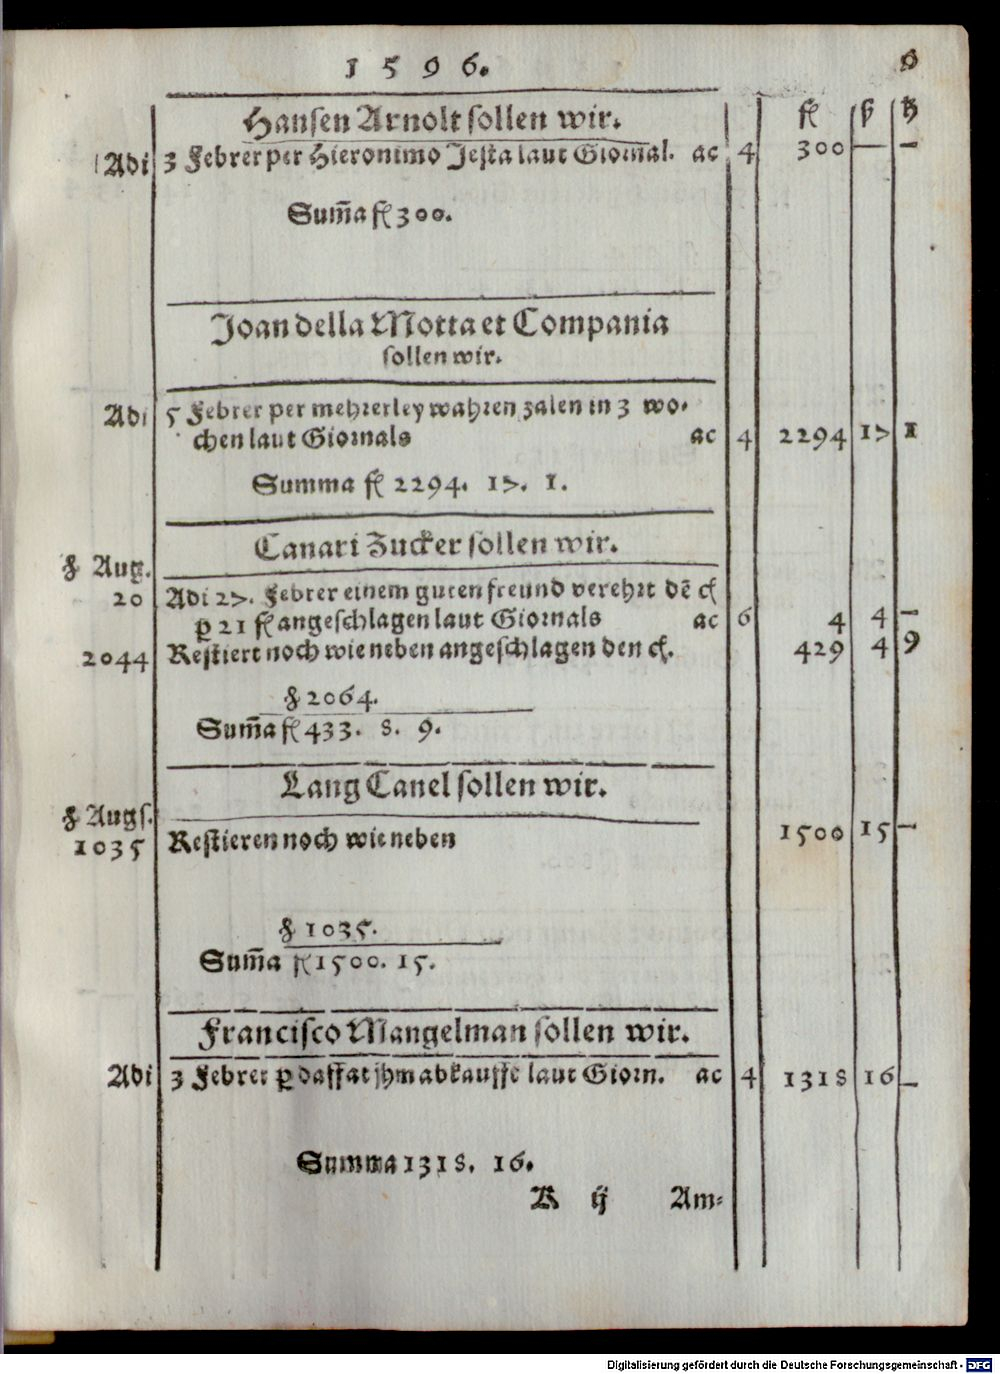 1596. 6
fl ß ₰
Hansen Arnolt sollen wir.
Adi 3 Febrer per Hieronimo Jesta laut Giornal. ac 4 300 — —
Sum̃a fl 300.
Joan della Motta et Compania
sollen wir.
Adi 5 Febrer per mehrerley wahren zalen in 3 wo-
chen laut Giornals ac 4 2294 17 1
Summa fl 2294. 17. 1.
Canari Zucker sollen wir.
℔ Aug.
20 Adi 27. Febrer einem guten freund verehrt dẽ
ꝑ 21 fl angeschlagen laut Giornals ac 6 4 4 —
2044 Restiert noch wie neben angeschlagen den 429 4 9
℔ 2064.
Sum̃a fl 433. 8. 9.
Lang Canel sollen wir.
℔ Augs.
1035 Restieren noch wie neben 1500 15 —
℔ 1035.
Sum̃a fl 1500. 15.
Francisco Mangelman sollen wir.
Adi 3 Febrer ꝑ daffat jhm abkaufft laut Giorn. ac 4 1318 16 —
Summa 1318. 16.
B ij Am-
Digitalisierung gefördert durch die Deutsche Forschungsgemeinschaft - DFG